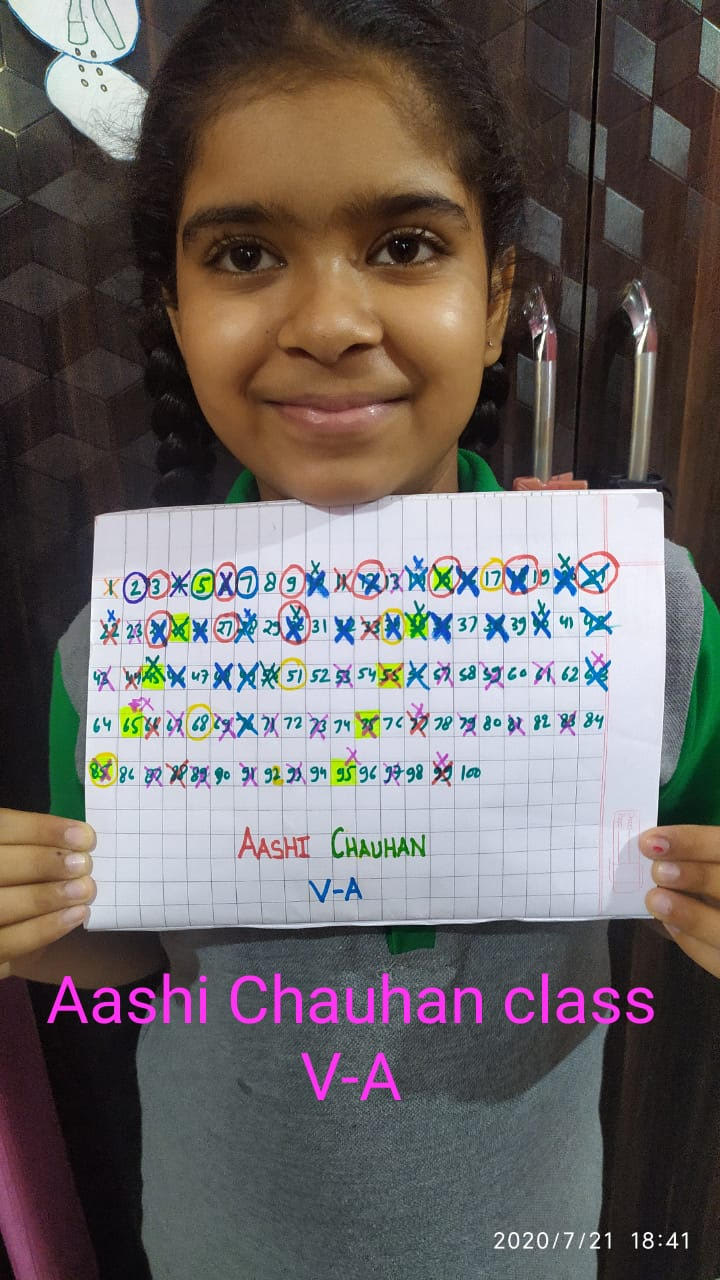 1 2 3 4 5 6 7 8 9 10 11 12 13 14 15 16 17 18 19 20 21
22 23 24 25 26 27 28 29 30 31 32 33 34 35 36 37 38 39 40 41 42
43 44 45 46 47 48 49 50 51 52 53 54 55 56 57 58 59 60 61 62 63
64 65 66 67 68 69 70 71 72 73 74 75 76 77 78 79 80 81 82 83 84
85 86 87 88 89 90 91 92 93 94 95 96 97 98 99 100
AASHI CHAUHAN
V-A
Aashi Chauhan class
V-A
2020/7/21 18:41